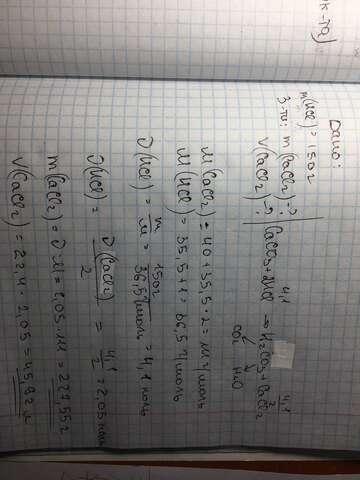 к-та)
Дано:
m(HCl) = 150г
З-ти: m(CaCl₂)-?
V(CaCl₂)-?
4,1 4,1/2
CaCO₃ + 2HCl → H₂CO₃ + CaCl₂
CO₂ H₂O
M(CaCl₂) = 40 + 35,5 · 2 = 111 г/моль
M(HCl) = 35,5 + 1 = 36,5 г/моль
ϑ(HCl) = m/M = 150г/36,5г/моль = 4,1 моль
ϑ(HCl) = ϑ(CaCl₂)/2 = 4,1/2 = 2,05 моль
m(CaCl₂) = ϑ · M = 2,05 · 111 = 227,55 г
V(CaCl₂) = 22,4 · 2,05 = 45,92 л